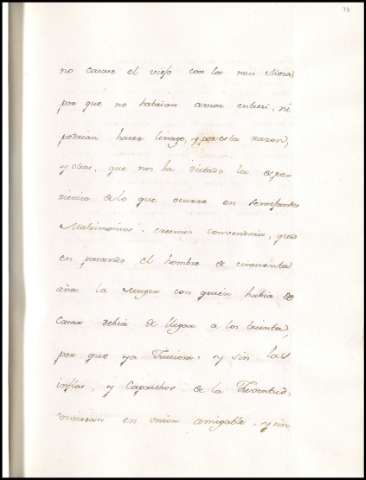 no casara el viejo con los mui Mozas
por que no habrian amor entre si, ni
podrian hacer linage, y por esta razon,
y otras, que nos ha dictado la espe-
riencia de lo que ocurre en semejantes
Matrimonios, creemos conveniente, que
en pasando el hombre de cinquenta
años la Muger con quien habia de
casar debia de llegar a los treinta,
por que ya Juiciosa, y sin las
, y Caprichos de la Juventud,
vivirian en union amigable, y sin